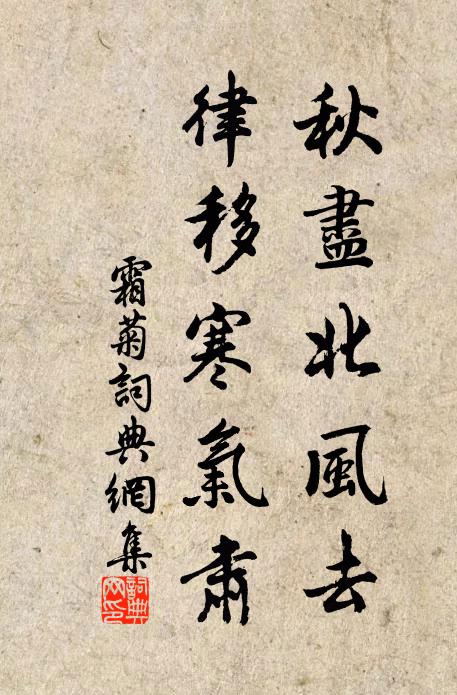 秋盡北風去
律移寒氣肅
霜菊詞典網集
詞典網印